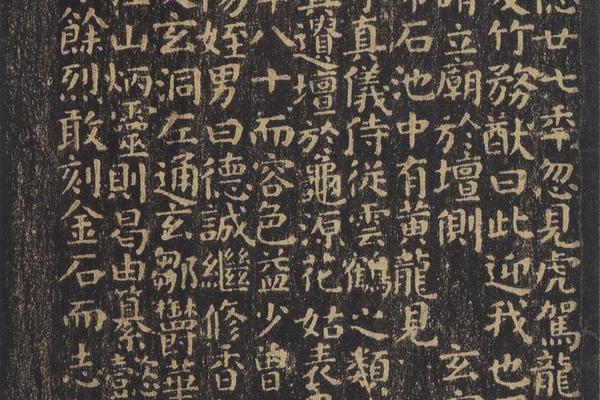 德廿七秊忽見虎駕龍
友竹務猷曰此迎我也
請立廟於壇側 玄
石池中有黃龍見
真儀侍從雲鶴之類
真遺壇於龜源花姑表
年八十而容色益少曾
陽姪男曰德誠繼修香
玄洞左通玄鄒鬱華
江山炳靈則曷由纂懿
餘烈敢刻金石而志